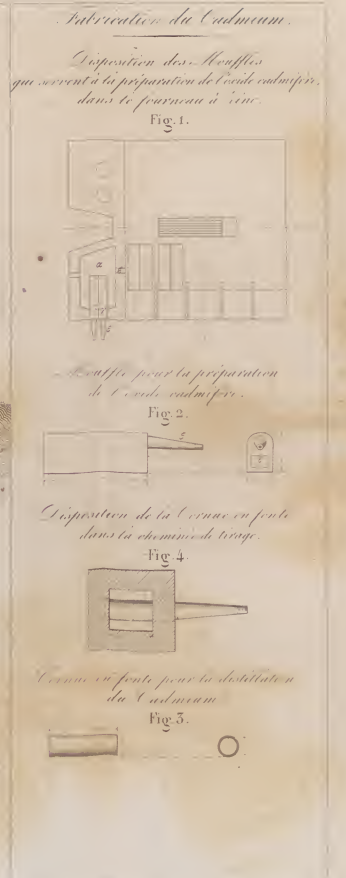 Fabrication du Cadmium.
Disposition des Mouffles
qui servent à la préparation de l'oxide cadmifère,
dans le fourneau à zinc.
Fig. 1.
a
Mouffle pour la préparation
de l'oxide cadmifère.
Fig. 2.
Disposition de la Cornue en fonte
dans la cheminée de tirage.
Fig. 4.
Cornue en fonte pour la distillation
du Cadmium
Fig. 3.